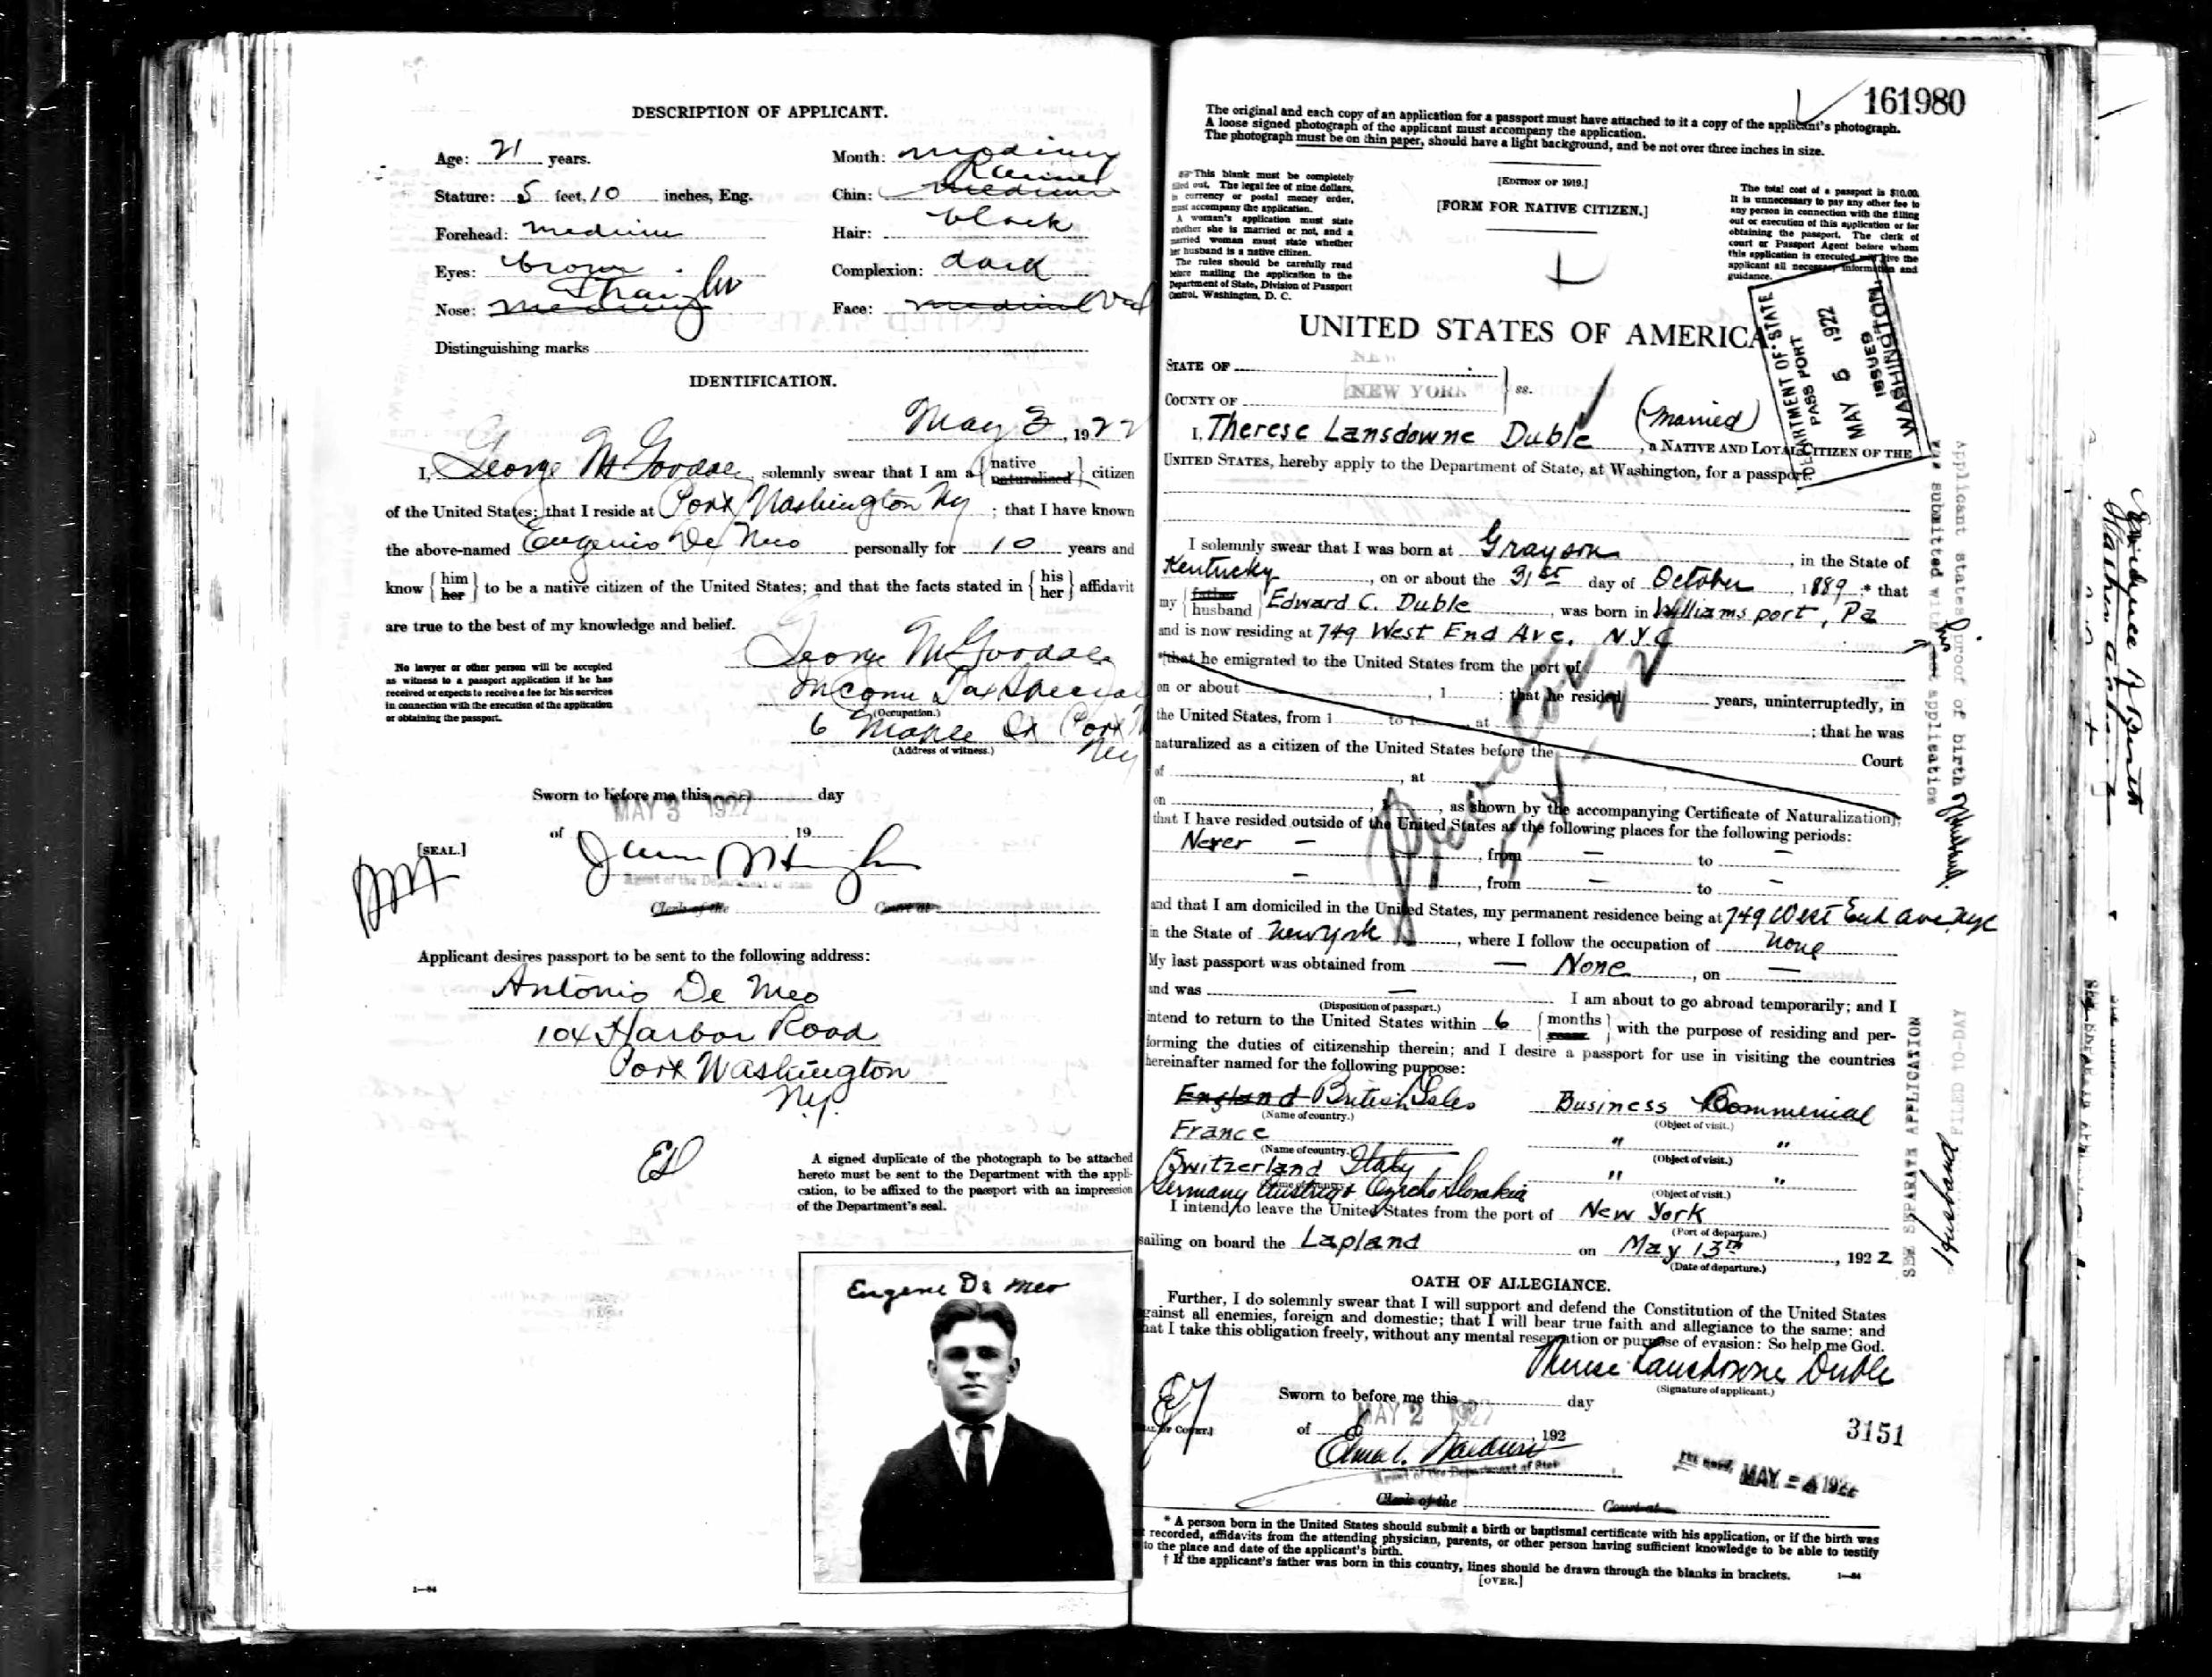 DESCRIPTION OF APPLICANT.
Age: 21 years.
Mouth: medium
Stature: 5 feet, 10 inches, Eng.
Chin: medium
Forehead: medium
Hair: black
Eyes: brown
Complexion: dark
Nose: medium
Face: medium Oval
Distinguishing marks
IDENTIFICATION.
May 3, 1922
I, George solemnly swear that I am a { native naturalized } citizen
of the United States; that I reside at Port Washington Ny ; that I have known
the above-named Eugenio De Meo personally for 10 years and
know { him her } to be a native citizen of the United States; and that the facts stated in { his her } affidavit
are true to the best of my knowledge and belief.
No lawyer or other person will be accepted
as witness to a passport application if he has
received or expects to receive a fee for his services
in connection with the execution of the application
or obtaining the passport.
George
Income Tax
(Occupation.)
6 Maple St Port
(Address of witness.)
Ny
Sworn to before me this day
MAY 3 1922
of , 19
[SEAL.]
Agent of the Department of State
Clerk of the Court at
Applicant desires passport to be sent to the following address:
Antonio De Meo
104 Harbor Road
Port Washington
N.y.
A signed duplicate of the photograph to be attached
hereto must be sent to the Department with the appli-
cation, to be affixed to the passport with an impression
of the Department's seal.
Eugene De Meo
1—84
161980
The original and each copy of an application for a passport must have attached to it a copy of the applicant's photograph.
A loose signed photograph of the applicant must accompany the application.
The photograph must be on thin paper, should have a light background, and be not over three inches in size.
This blank must be completely
filled out. The legal fee of nine dollars,
in currency or postal money order,
must accompany the application.
A woman's application must state
whether she is married or not, and a
married woman must state whether
her husband is a native citizen.
The rules should be carefully read
before mailing the application to the
Department of State, Division of Passport
Control, Washington, D. C.
[EDITION OF 1919.]
[FORM FOR NATIVE CITIZEN.]
The total cost of a passport is $10.00.
It is unnecessary to pay any other fee to
any person in connection with the filling
out or execution of this application or for
obtaining the passport. The clerk of
court or Passport Agent before whom
this application is executed will give the
applicant all necessary information and
guidance.
DEPARTMENT OF STATE
PASSPORT
MAY 5 1922
ISSUED
WASHINGTON
UNITED STATES OF AMERICA
STATE OF NEW
COUNTY OF NEW YORK } ss.
I, Therese Lansdowne Duble (Married), a NATIVE AND LOYAL CITIZEN OF THE
UNITED STATES, hereby apply to the Department of State, at Washington, for a passport.
I solemnly swear that I was born at Grayson, in the State of
Kentucky, on or about the 31st day of October, 1889;* that
my { father husband } Edward C. Duble, was born in Williamsport, Pa
and is now residing at 749 West End Ave. N.Y.C
†[that he emigrated to the United States from the port of
on or about , 1 ; that he resided years, uninterruptedly, in
the United States, from 1 to 1 , at ; that he was
naturalized as a citizen of the United States before the Court
of , at
on , 1 , as shown by the accompanying Certificate of Naturalization];
that I have resided outside of the United States at the following places for the following periods:
Never — , from — to —
— , from — to —
and that I am domiciled in the United States, my permanent residence being at 749 West End Ave. Nyc
in the State of New York, where I follow the occupation of none
My last passport was obtained from — None , on —
and was —
(Disposition of passport.)
I am about to go abroad temporarily; and I
intend to return to the United States within 6 { months years } with the purpose of residing and per-
forming the duties of citizenship therein; and I desire a passport for use in visiting the countries
hereinafter named for the following purpose:
England British Isles Business Commercial
(Name of country.) (Object of visit.)
France " "
(Name of country.) (Object of visit.)
Switzerland Italy " "
Germany Austria Czecho Slovakia
(Object of visit.)
I intend to leave the United States from the port of New York
(Port of departure.)
sailing on board the Lapland on May 13th, 1922
(Date of departure.)
OATH OF ALLEGIANCE.
Further, I do solemnly swear that I will support and defend the Constitution of the United States
against all enemies, foreign and domestic; that I will bear true faith and allegiance to the same; and
that I take this obligation freely, without any mental reservation or purpose of evasion: So help me God.
Therese Lansdowne Duble
(Signature of applicant.)
Sworn to before me this day
MAY 2 1922
of , 192
3151
MAY - 4 1922
Agent of the Department of State
Clerk of the Court at
* A person born in the United States should submit a birth or baptismal certificate with his application, or if the birth was
recorded, affidavits from the attending physician, parents, or other person having sufficient knowledge to be able to testify
to the place and date of the applicant's birth.
† If the applicant's father was born in this country, lines should be drawn through the blanks in brackets.
[OVER.]
1—84
Applicant states proof of birth Husband
was submitted with his application
SEE SEPARATE APPLICATION
Husband FILED TO-DAY